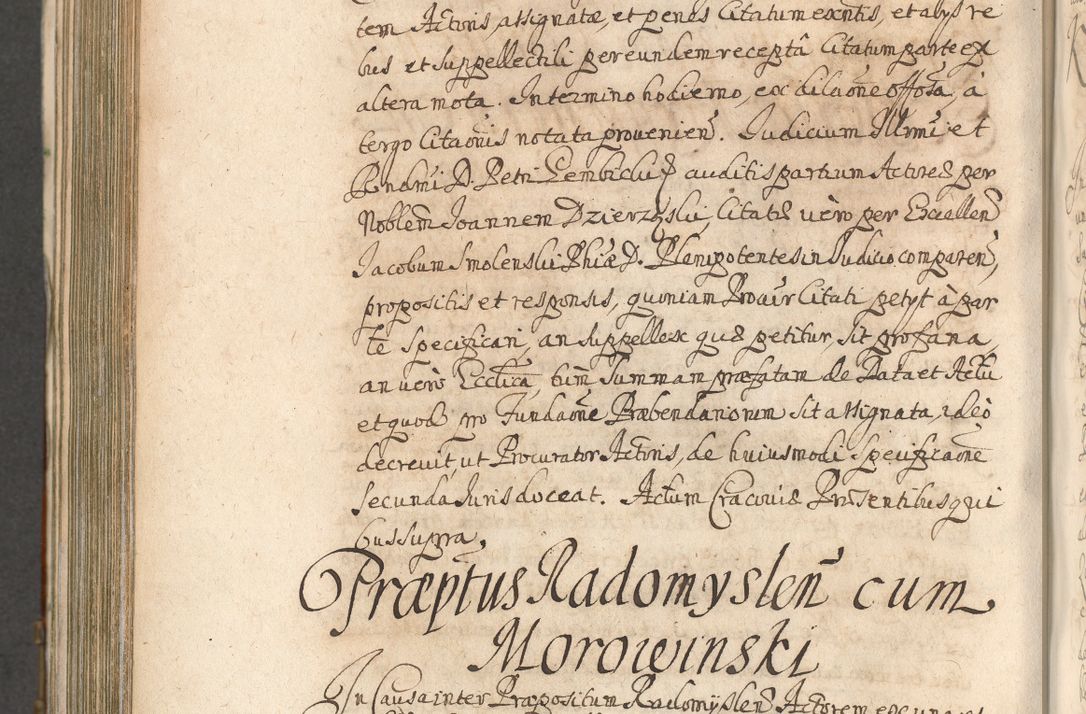 tem Actoris, assignatæ, et penes Citatum exentis, et alijs re
bus et suppellectili per eundem receptâ Citatum parte ex
altera mota. In termino hodierno, ex dilaõne offosâ, à
tergo Citaõnis notata prouenieñ. Iudicium Illrmi et
Rndmi D. Petri Gembicki auditis partium Actoreæ per
Noblem̃ Joannem Dzierzyski, Citatæ uèro per Excelleñ
Jacobum Smolenski Phiæ D. Plenipotentes in Iudicio compareñ,
propositis et responsis, quoniam Procur Citati petyt à par
te specificari, an suppellex quæ petitur, sit profana,
an uero Eccliĉa, tum Summam præfatam de Data et Actu
et quod pro Fundaõne Præbendariorum sit assignata, ideò
decreuit, ut Procurator Actoris, de huiusmodi specificaõne
secunda Iuris doceat. Actum Cracouiæ Præsentibus qui
bus supra.
Præptus Radomysleñ cum
Morowinski
In Causa inter Præpositum Radomÿsleñ Actorem ex una et